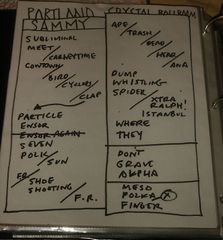 PARTLAND
SAMMY
SUBLIMINAL
MEET
/CARNEYTIME
COWTOWN
/BIRD
/CYCLOPS
/CLAP
PARTICLE
ENSOR
ENSOR AGAIN
SEVEN
POLK
/SUN
FR.
/SHOE
SHOOTING
/F.R.
CRYSTAL BALLROOM
APE
/TRASH
/DEAD
/HEAR
/ANA
DUMP
WHISTLING
SPIDER
/XTRA
RALPH!
ISTANBUL
WHERE
THEY
DONT
GRAVE
ALPHA
MESO
POLKA
FINGER